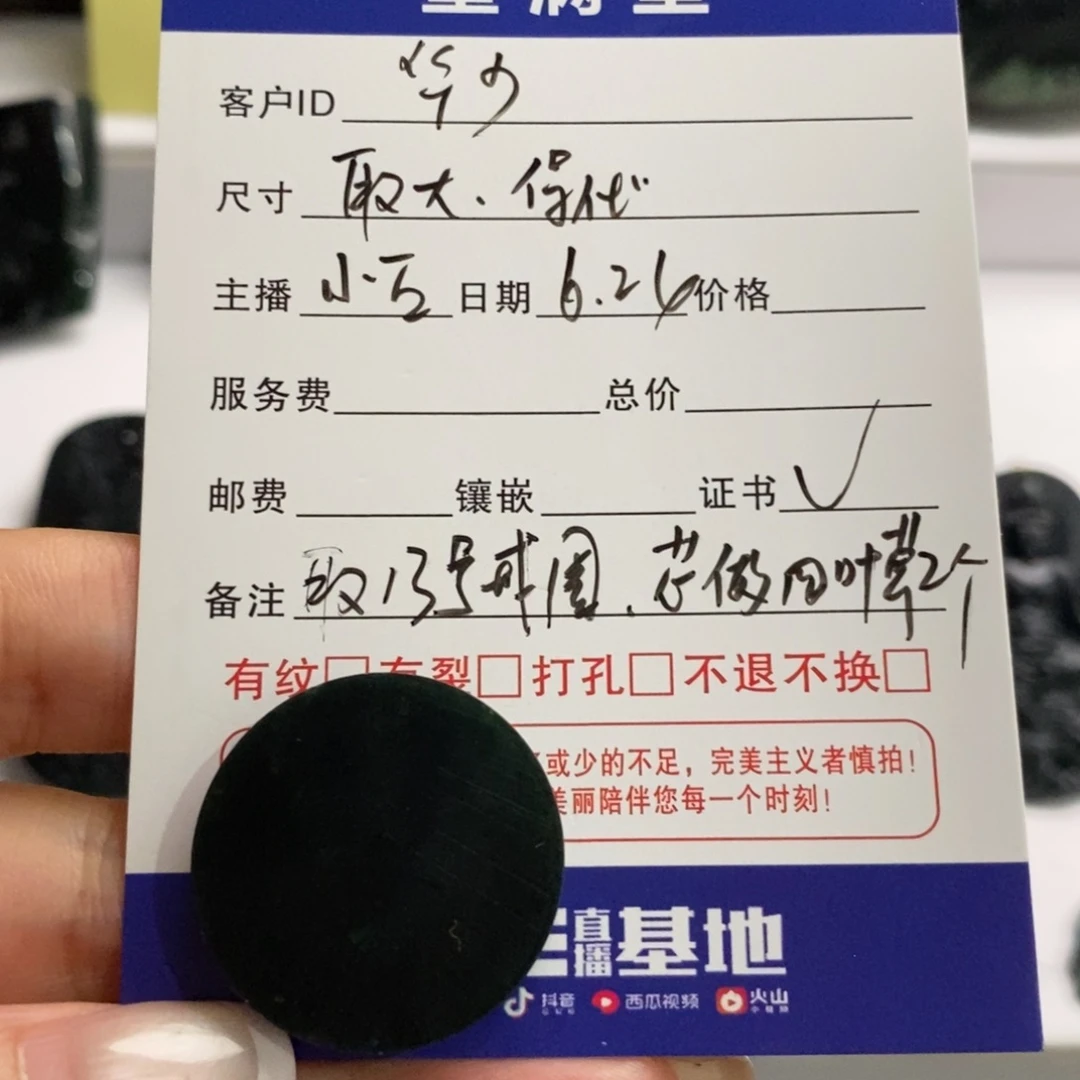 客户ID 华少
尺寸 取大、保代
主播 小豆 日期 6.26 价格
服务费 总价
邮费 镶嵌 证书 ✓
备注 取13号戒圈、芯做四叶草2个
有纹□ 有裂□ 打孔□ 不退不换□
或少的不足，完美主义者慎拍！
美丽陪伴您每一个时刻！
直播基地
抖音 西瓜视频 火山